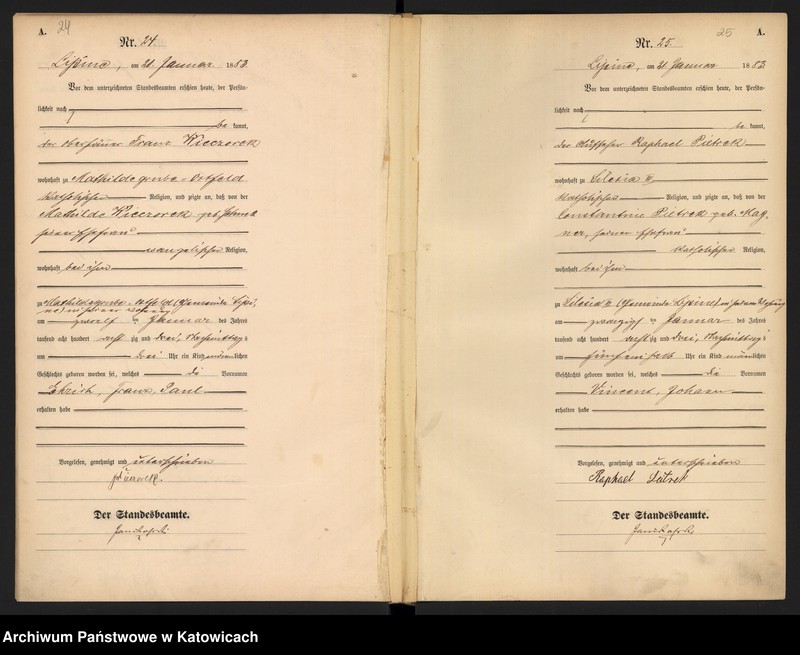 A. 24
Nr. 24.
Lipine, am 21 Januar 1883.
Vor dem unterzeichneten Standesbeamten erschien heute, der Persön-
lichkeit nach
be kannt,
der Franz Wieczorek
wohnhaft zu Mathildegrube-Ostfeld
katholischer Religion, und zeigte an, daß von der
Mathilde Wieczorek geb.
seiner Ehefrau
evangelischer Religion,
wohnhaft bei ihm
zu Mathildegrube-Ostfeld (Gemeinde Lipi-
ne) in seiner Wohnung
am zwölften Januar des Jahres
tausend acht hundert achtzig und drei, Vormittags
um drei Uhr ein Kind männlichen
Geschlechts geboren worden sei, welches die Vornamen
Franz, Paul
erhalten habe
Vorgelesen, genehmigt und unterschrieben
Der Standesbeamte.
25 A.
Nr. 25.
Lipine, am 21 Januar 1883.
Vor dem unterzeichneten Standesbeamten erschien heute, der Persön-
lichkeit nach
be kannt,
der Raphael Pietrek
wohnhaft zu Silesia
katholischer Religion, und zeigte an, daß von der
Constantine Pietrek geb. Wag-
ner, seiner Ehefrau
katholischer Religion,
wohnhaft bei ihm
zu Silesia (Gemeinde Lipine) in seiner Wohnung
am zwanzigsten Januar des Jahres
tausend acht hundert achtzig und drei, Vormittags
um Uhr ein Kind männlichen
Geschlechts geboren worden sei, welches die Vornamen
Vincent, Johann
erhalten habe
Vorgelesen, genehmigt und unterschrieben
Raphael Pietrek
Der Standesbeamte.
Archiwum Państwowe w Katowicach